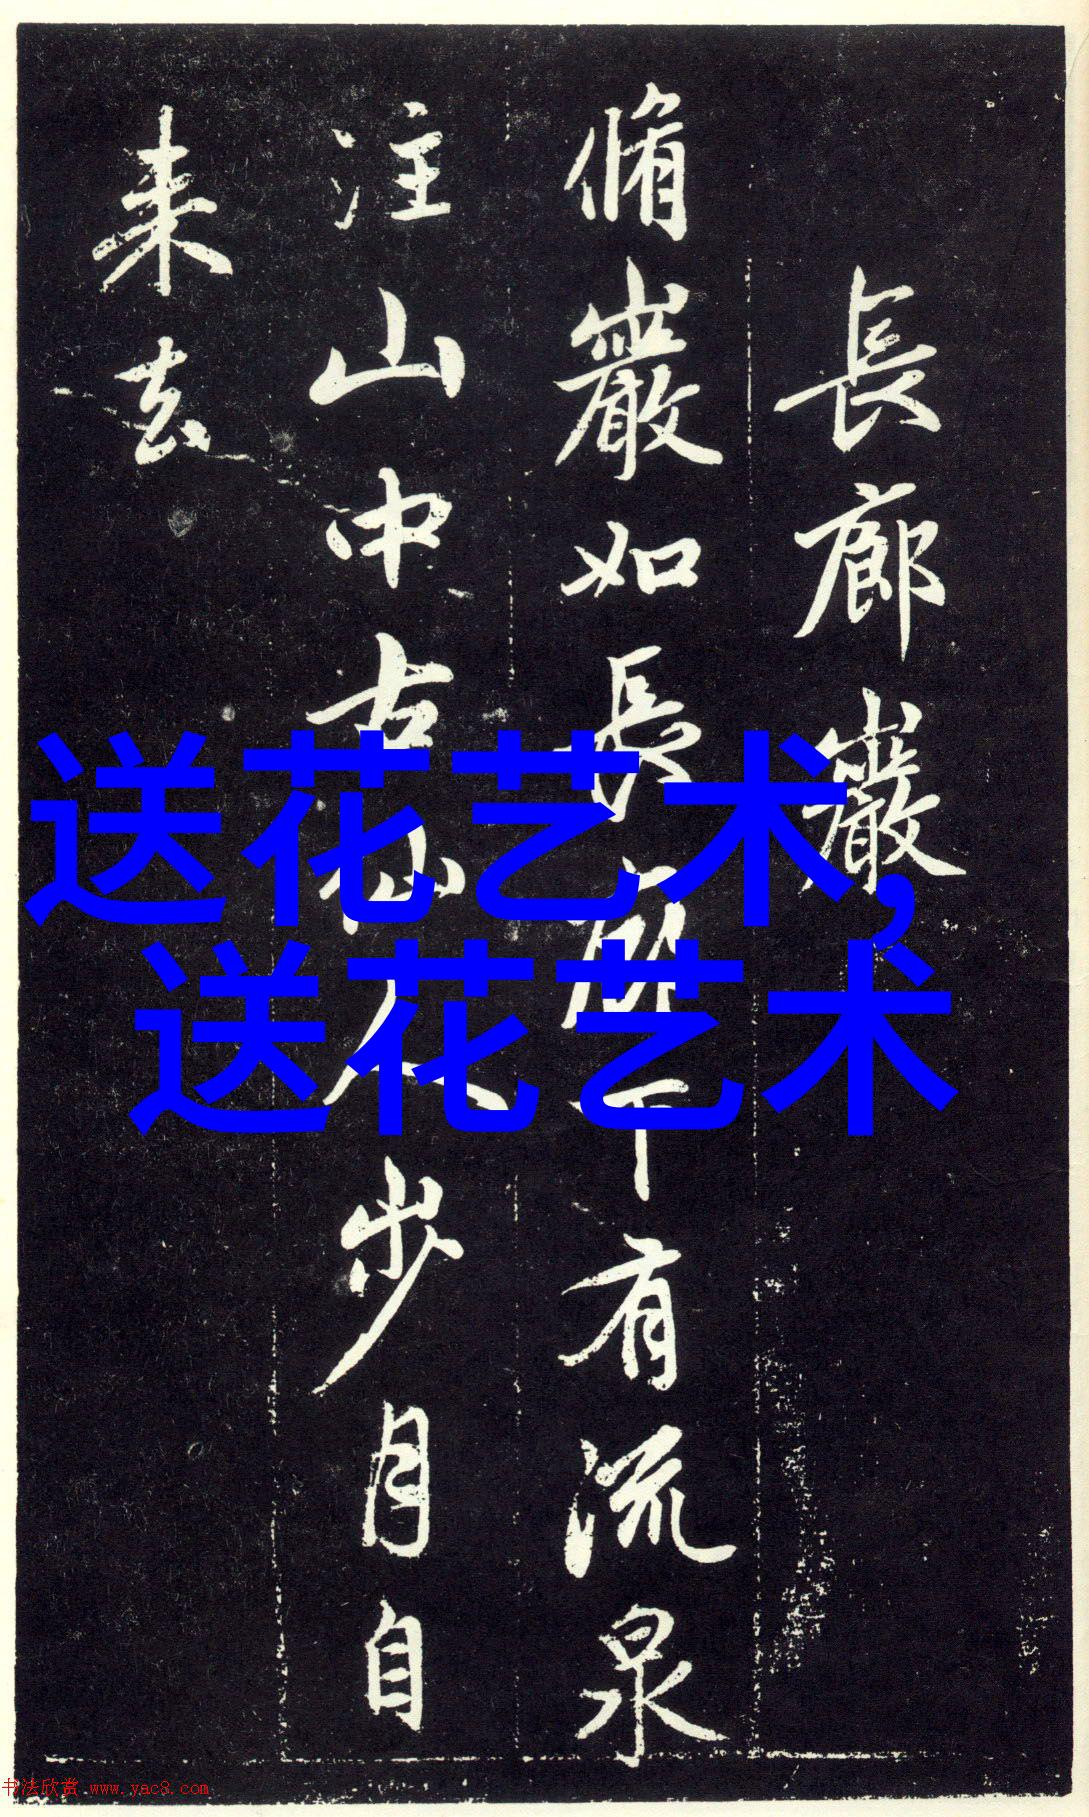 長廊巖
脩巖如長廊下有流泉
注山中古仙人步月自
来去
送花艺术,
送花艺术
书法欣赏 www.yac8.com